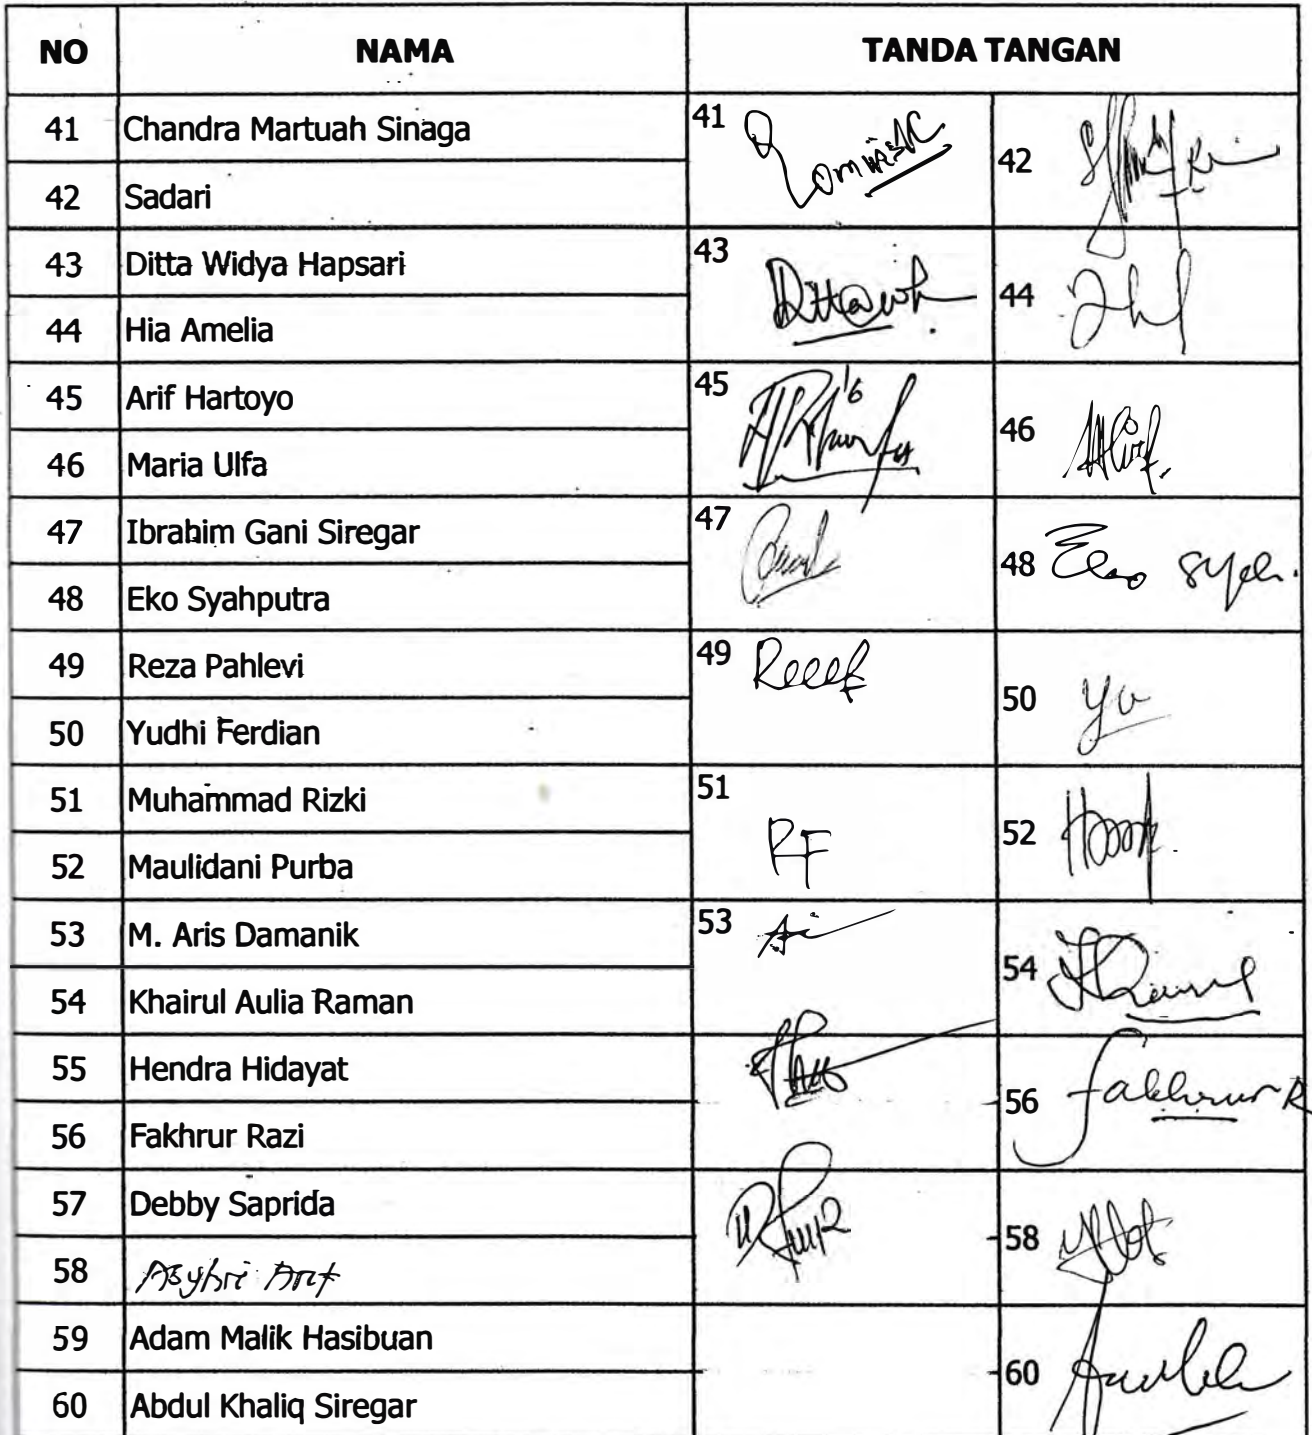 NO NAMA TANDA TANGAN
41 Chandra Martuah Sinaga 41
42 Sadari 42
43 Ditta Widya Hapsari 43
44 Hia Amelia 44
45 Arif Hartoyo 45
46 Maria Ulfa 46
47 Ibrahim Gani Siregar 47
48 Eko Syahputra 48
49 Reza Pahlevi 49
50 Yudhi Ferdian 50 Yu
51 Muhammad Rizki 51 RF
52 Maulidani Purba 52
53 M. Aris Damanik 53
54 Khairul Aulia Raman 54
55 Hendra Hidayat
56 Fakhrur Razi 56 Fakhrur R
57 Debby Saprida
58 58
59 Adam Malik Hasibuan
60 Abdul Khaliq Siregar 60